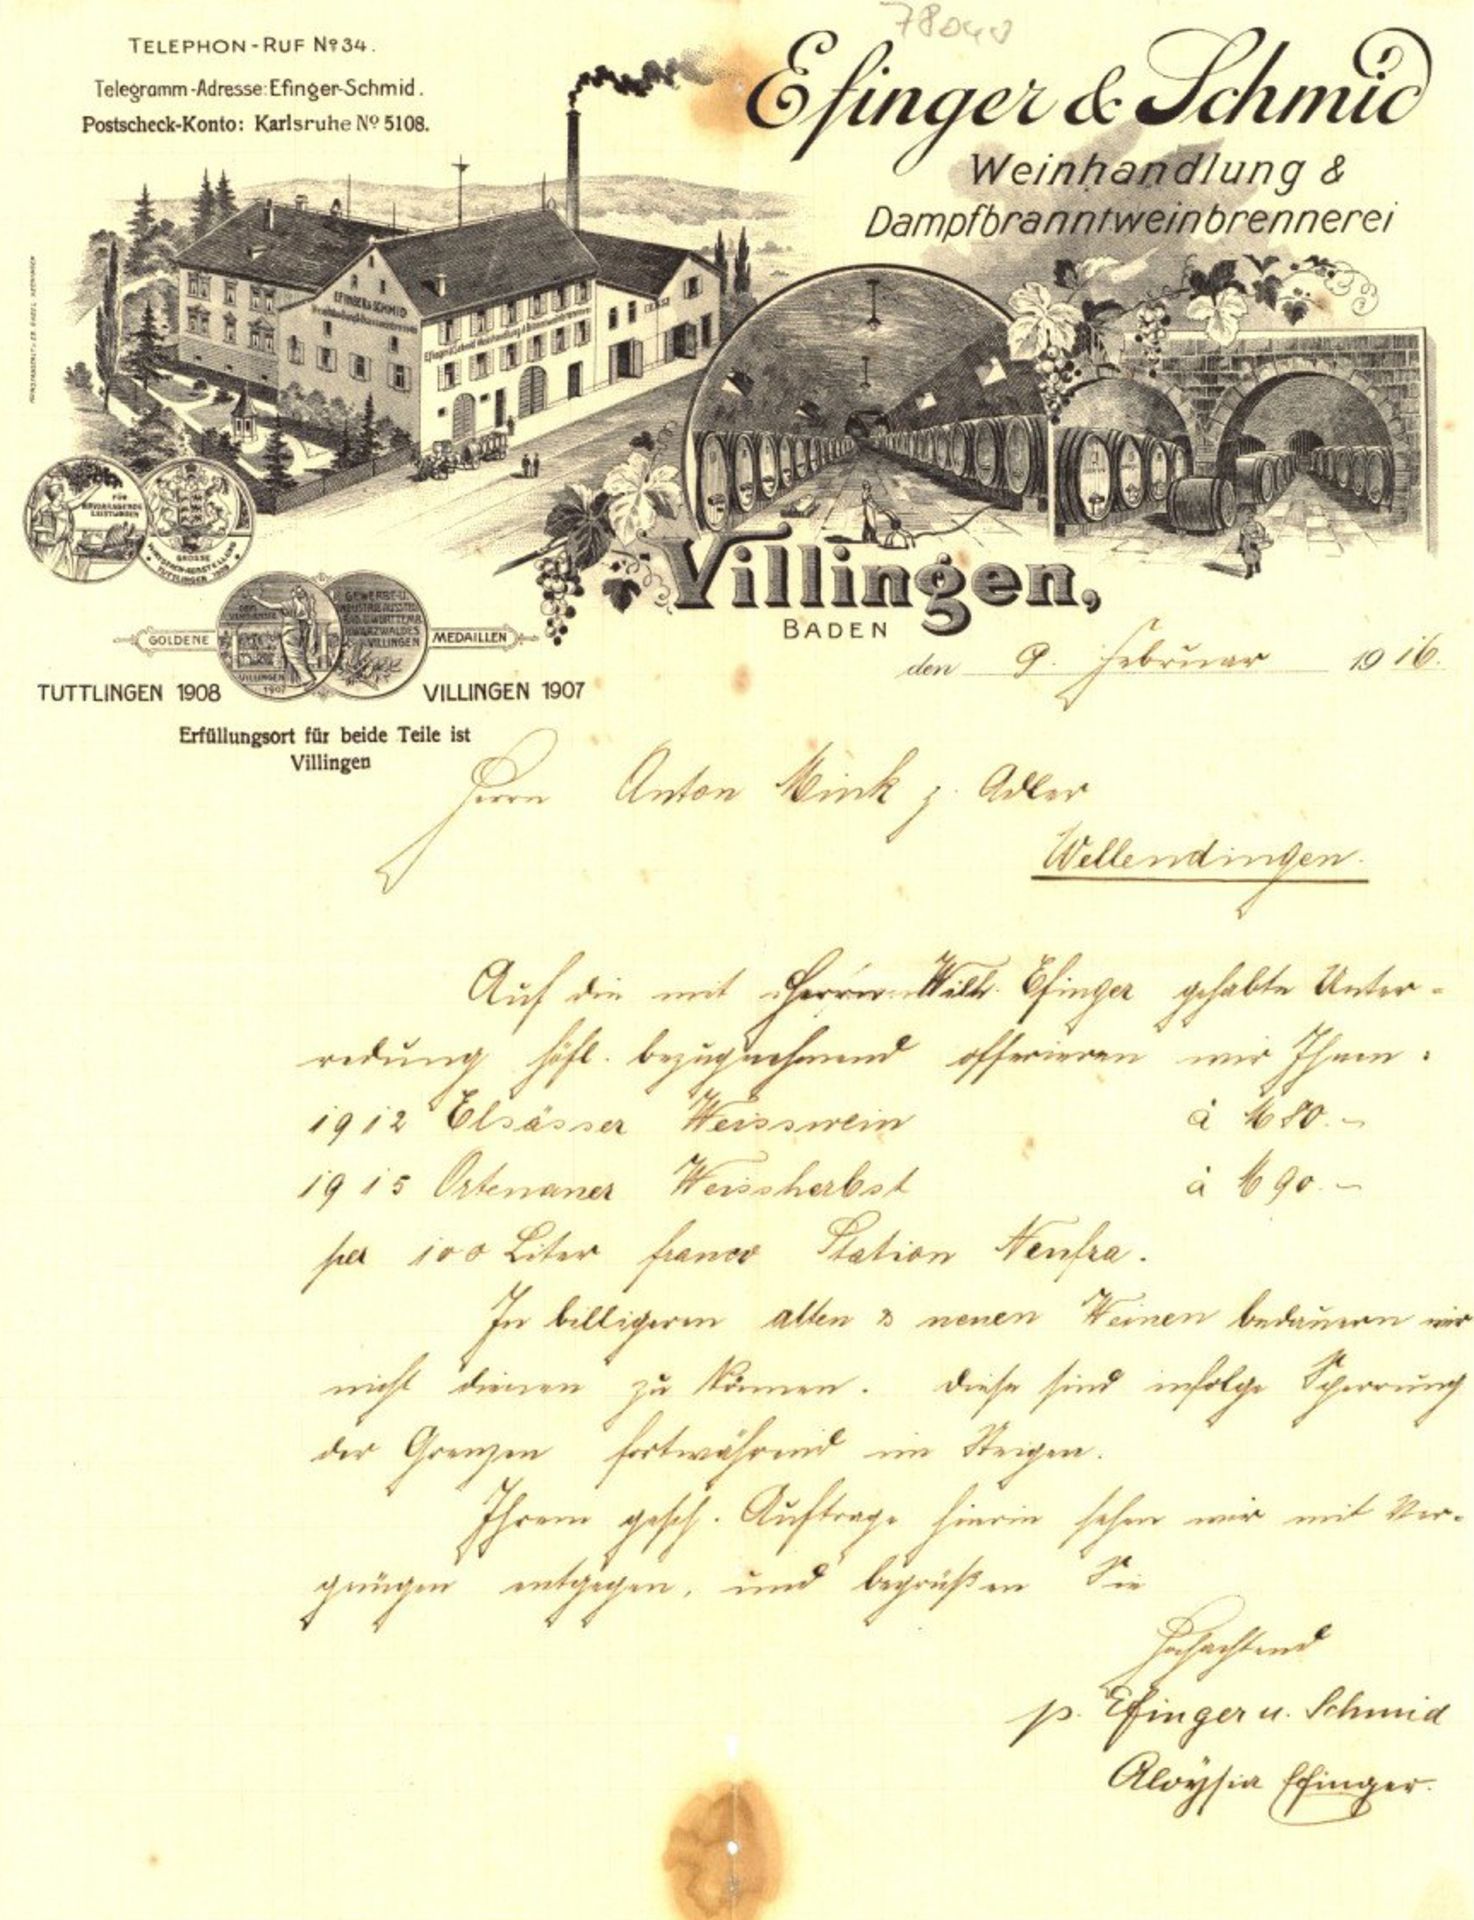 78040
TELEPHON-RUF Nº 34.
Telegramm-Adresse: Efinger-Schmid.
Postscheck-Konto: Karlsruhe Nº 5108.
Efinger & Schmid
Weinhandlung &
Dampfbranntweinbrennerei
EFINGER & SCHMID
FÜR
HERVORRAGENDE
LEISTUNGEN
GROSSE
TUTTLINGEN 1908
VILLINGEN
1907
GEWERBE- U.
INDUSTRIE-AUSSTELLG.
VILLINGEN
GOLDENE MEDAILLEN
TUTTLINGEN 1908 VILLINGEN 1907
Erfüllungsort für beide Teile ist
Villingen
Villingen,
BADEN
den 9. Februar 1916.
Herrn Anton Mink z. Adler
Wellendingen.
Auf die mit Herrn Wilh. Efinger gehabte Unter-
redung höfl. bezugnehmend offerieren wir Ihnen:
1912 Elsässer Weisswein à M 80.-
1915 Ortenauer Weissherbst à M 90.-
per 100 Liter franco Station Neufra.
In billigeren alten & neuen Weinen bedauern wir
nicht dienen zu können. Diese sind infolge Sperrung
der Grenzen fortwährend im Steigen.
Ihrem gesch. Auftrage hierin sehen wir mit Ver-
gnügen entgegen, und begrüßen Sie
Hochachtend
p. Efinger u. Schmid
Aloysia Efinger.